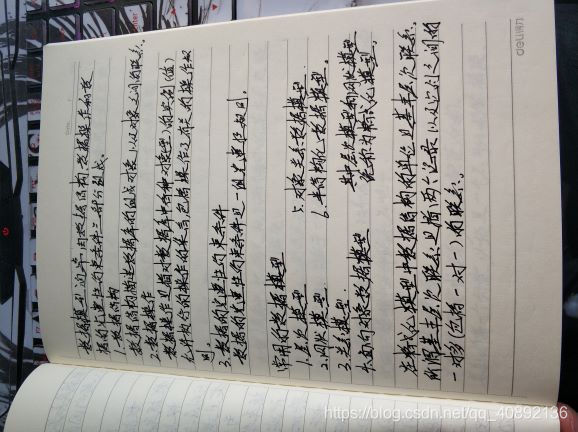 数据模型通常由数据结构,数据操作和数
据的完整性约束条件三部分组成.
1.数据结构
数据结构描述数据库的组成对象以及对象之间的联系.
2.数据操作
数据操作是指对数据库中各种对象(型)的实例(值)
允许执行的操作的集合,包括操作及有关的操作规
则.
3.数据的完整性约束条件
数据的完整性约束条件是一组完整性规则.
常用的数据模型
1.层次模型
2.网状模型
3.关系模型
4.面向对象数据模型
5.对象关系数据模型
6.半结构化数据模型.
其中层次模型和网状模型
统称为格式化模型.
在格式化模型中数据结构的单位是基本层次联系.
所谓基本层次联系是指两个记录以及它们之间的
一对多(包括一对一)的联系.
deli得力
https://blog.csdn.net/qq_40892136